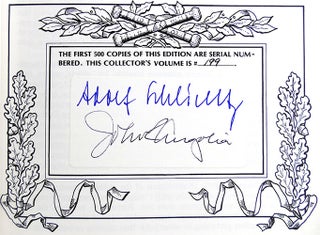 THE FIRST 500 COPIES OF THIS EDITION ARE SERIAL NUM-
BERED. THIS COLLECTOR'S VOLUME IS # 199.
Adolf
John Angolia